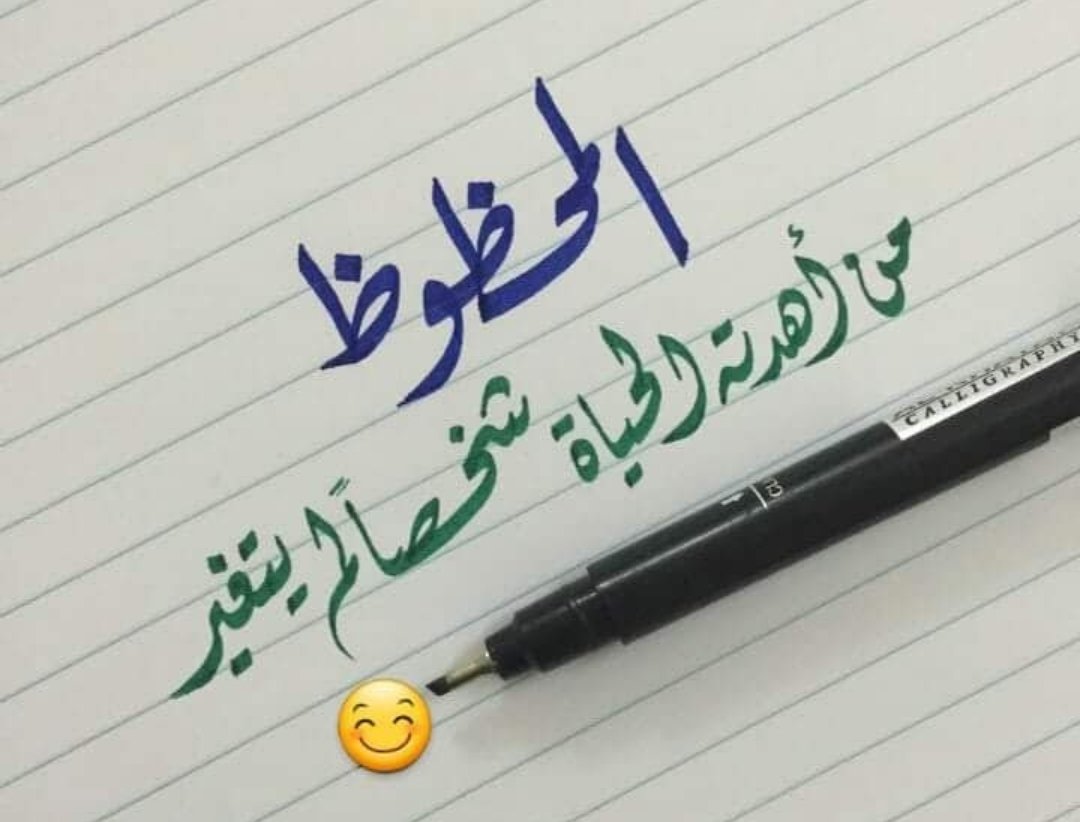 المحظوظ
من أهدته الحياة شخصاً لم يتغير
CALLIGRAPHY